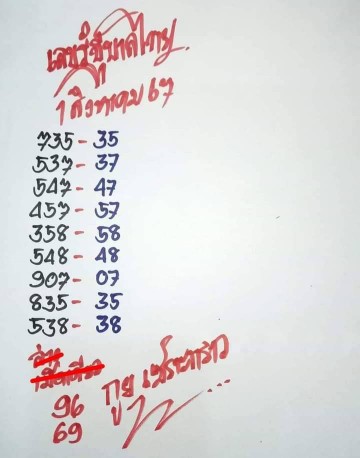 1 สิงหาคม 67
735 - 35
537 - 37
547 - 47
457 - 57
358 - 58
548 - 48
907 - 07
835 - 35
538 - 38
96
69